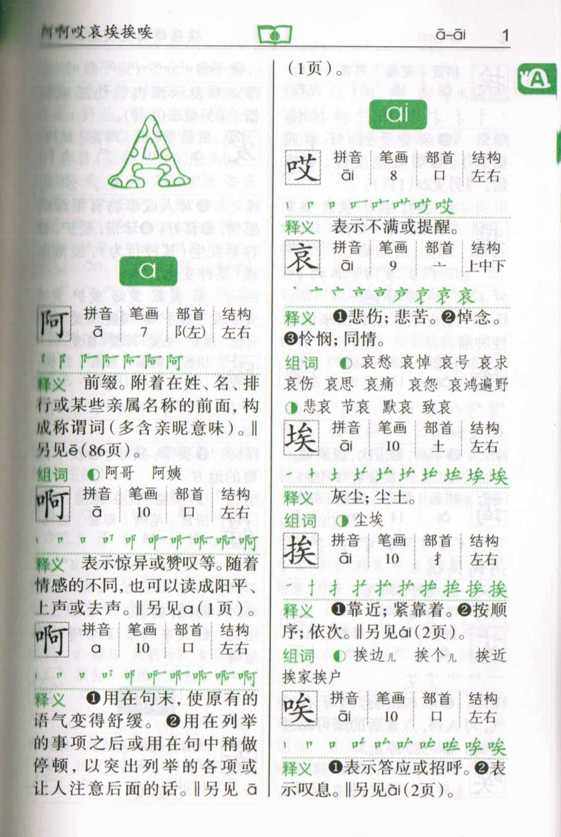 阿啊哎哀埃挨唉
ā–āi 1
A
A
a
阿 拼音 笔画 部首 结构
ā 7 阝(左) 左右
释义 前缀。附着在姓、名、排
行或某些亲属名称的前面,构
成称谓词(多含亲昵意味)。‖
另见ē(86页)。
组词 ◐阿哥 阿姨
啊 拼音 笔画 部首 结构
ā 10 口 左右
释义 表示惊异或赞叹等。随着
情感的不同,也可以读成阳平、
上声或去声。‖另见a(1页)。
啊 拼音 笔画 部首 结构
a 10 口 左右
释义 ❶用在句末,使原有的
语气变得舒缓。❷用在列举
的事项之后或用在句中稍做
停顿,以突出列举的各项或
让人注意后面的话。‖另见 ā
(1页)。
ai
哎 拼音 笔画 部首 结构
āi 8 口 左右
释义 表示不满或提醒。
哀 拼音 笔画 部首 结构
āi 9 亠 上中下
释义 ❶悲伤;悲苦。❷悼念。
❸怜悯;同情。
组词 ◐哀愁 哀悼 哀号 哀求
哀伤 哀思 哀痛 哀怨 哀鸿遍野
◑悲哀 节哀 默哀 致哀
埃 拼音 笔画 部首 结构
āi 10 土 左右
释义 灰尘;尘土。
组词 ◑尘埃
挨 拼音 笔画 部首 结构
āi 10 扌 左右
释义 ❶靠近;紧靠着。❷按顺
序;依次。‖另见ái(2页)。
组词 ◐挨边儿 挨个儿 挨近
挨家挨户
唉 拼音 笔画 部首 结构
āi 10 口 左右
释义 ❶表示答应或招呼。❷表
示叹息。‖另见ài(2页)。